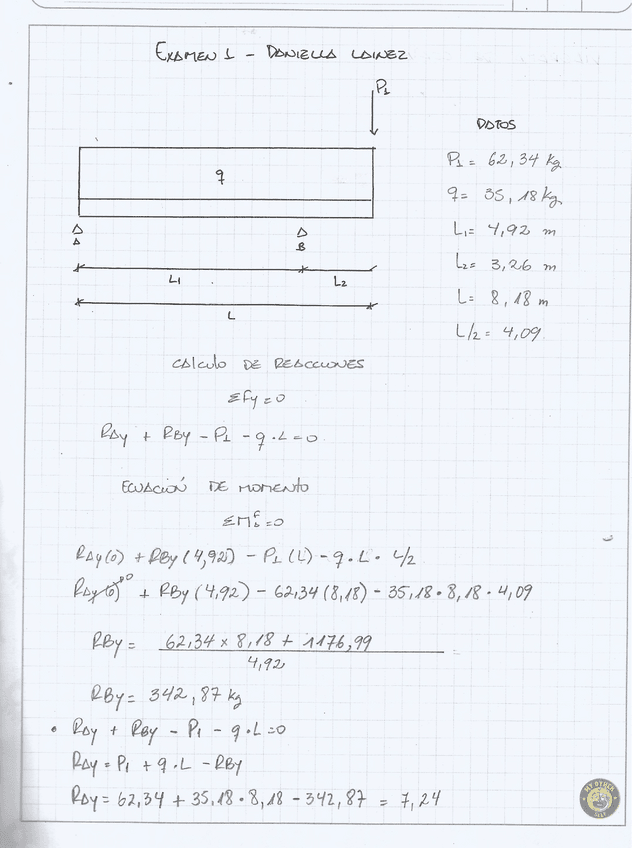 EXAMEN 1 - DANIELLA LAINEZ
P1
q
A
B
L1
L2
L
DATOS
P1 = 62,34 kg
q = 35,18 kg
L1 = 4,92 m
L2 = 3,26 m
L = 8,18 m
L/2 = 4,09
CALCULO DE REACCIONES
ΣFy = 0
RAy + RBy - P1 - q · L = 0
ECUACIÓN DE MOMENTO
RAy(0) + RBy(4,92) - P1(L) - q · L · L/2
RAy(0) 0 + RBy(4,92) - 62,34(8,18) - 35,18 · 8,18 · 4,09
RBy = 62,34 x 8,18 + 1176,99
4,92
RBy = 342,87 kg
• RAy + RBy - P1 - q · L = 0
RAy = P1 + q · L - RBy
RAy = 62,34 + 35,18 · 8,18 - 342,87 = 7,24
MY OTHER
SELF